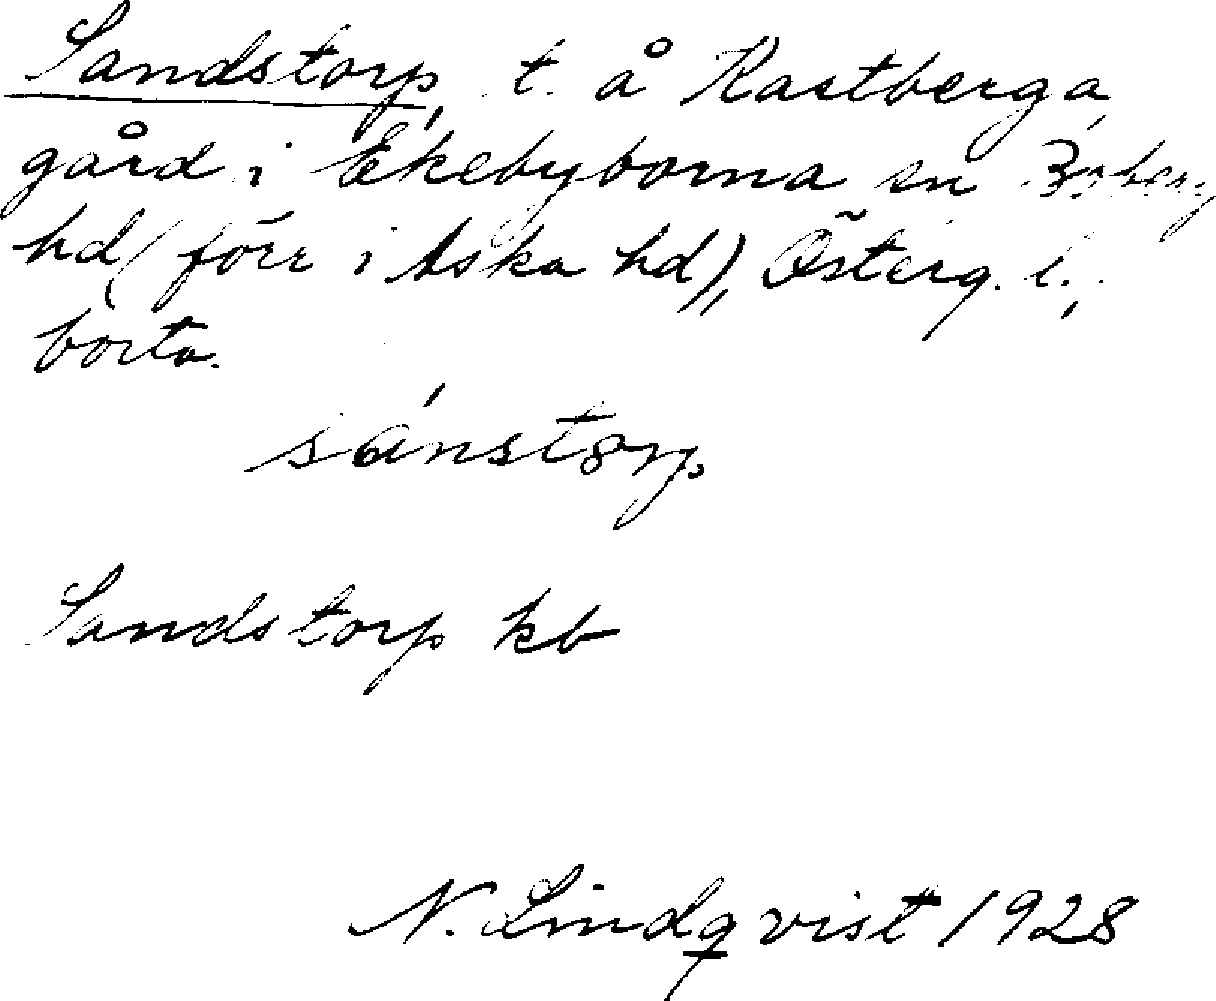 Sandstorp, t. å Kastberga
gård i Ekebyborna sn Boberg
hd (förr i Aska hd), Österg. l.,
borta.
sánstorp
Sandstorp kb
N. Lindqvist 1928